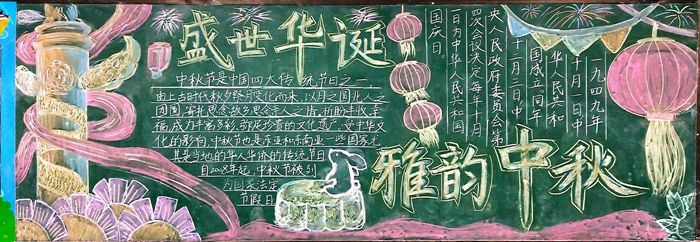 盛世华诞
中秋节是中国四大传统节日之一
由上古时代秋夕祭月变化而来，以月之圆兆人之
团圆，寄托思念故乡思念亲人之情，祈盼丰收幸
福，成为丰富多彩，弥足珍贵的文化遗产，受中华文
化的影响，中秋节也是东亚和东南亚一些国家尤
其是当地的华人华侨的传统节日
自2008年起，中秋节被列
为国家法定
节假日
一九四九年
十月一日中
华人民共和
国成立同年
十二月三日中
央人民政府委员会第
四次会议决定每年十月
一日为中华人民共和国
国庆日。
雅韵中秋